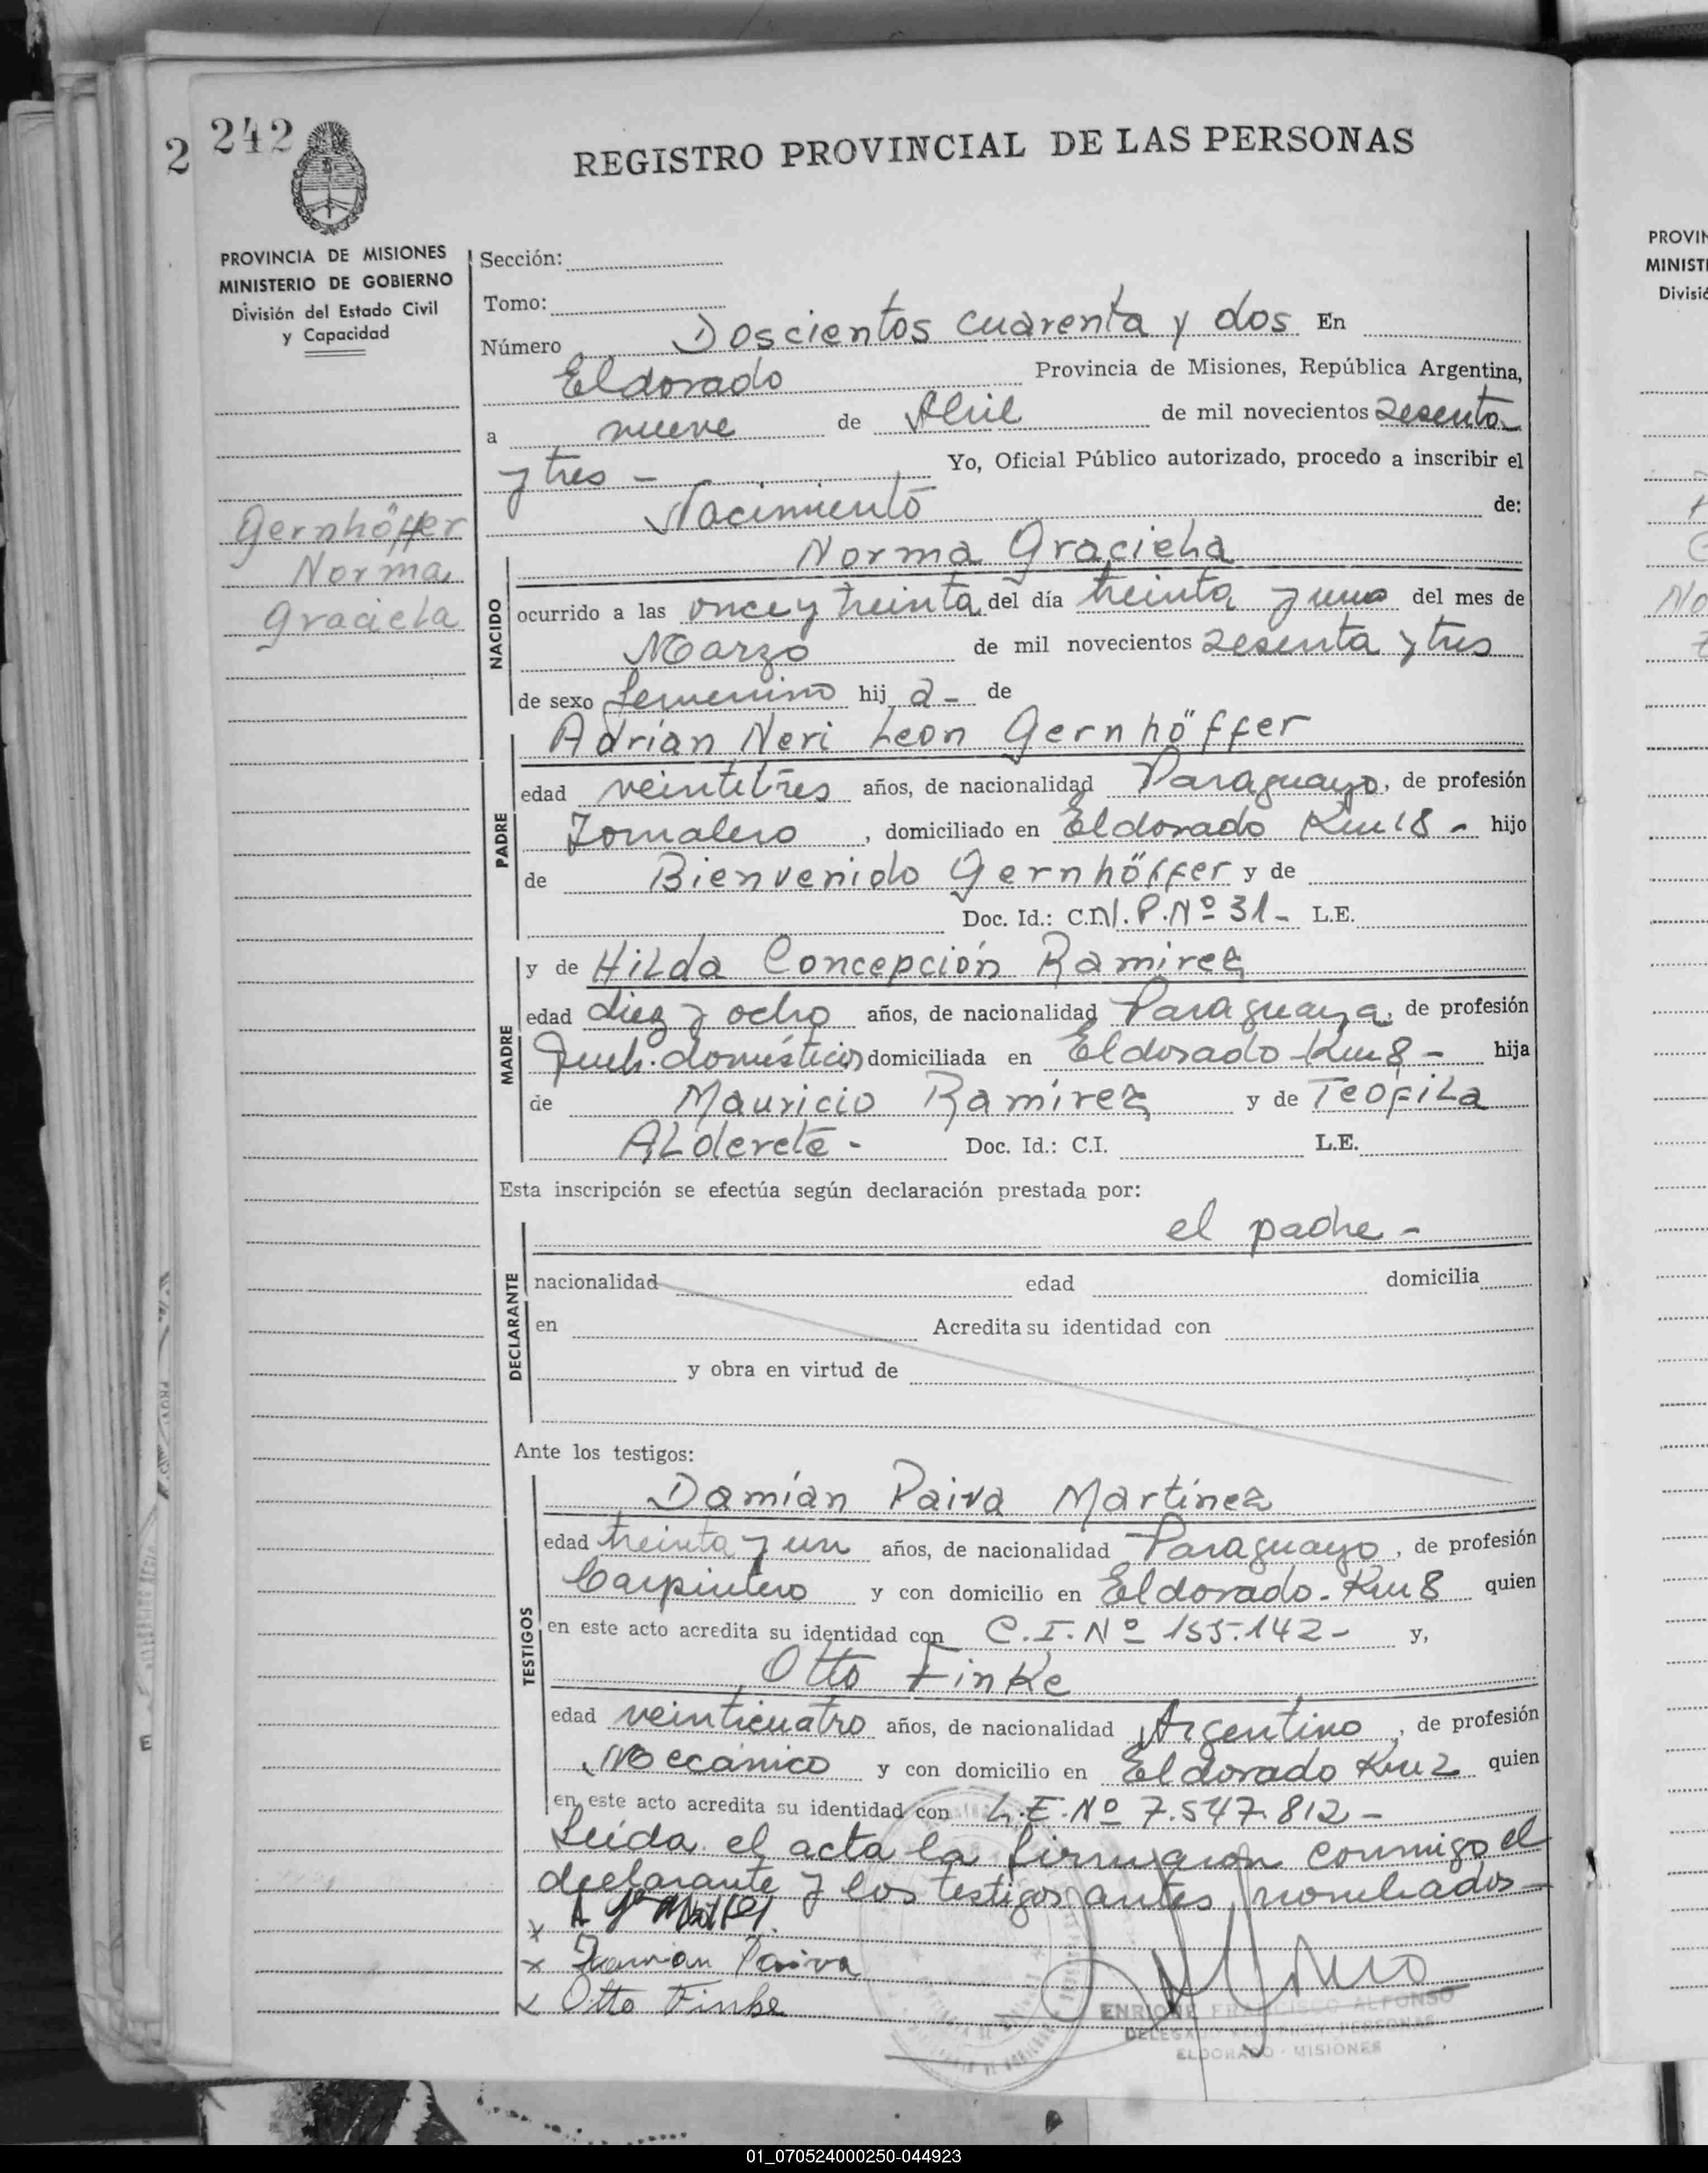 2 242
REGISTRO PROVINCIAL DE LAS PERSONAS
PROVINCIA DE MISIONES
MINISTERIO DE GOBIERNO
División del Estado Civil
y Capacidad
Gernhöffer
Norma
Graciela
Sección:
Tomo:
Número Doscientos cuarenta y dos En
Eldorado Provincia de Misiones, República Argentina,
a nueve de Abril de mil novecientos sesenta
y tres - Yo, Oficial Público autorizado, procedo a inscribir el
Nacimiento de:
NACIDO
Norma Graciela
ocurrido a las once y treinta del día treinta y uno del mes de
Marzo de mil novecientos sesenta y tres
de sexo femenino hij a - de
PADRE
Adrián Neri Leon Gernhöffer
edad veintitrés años, de nacionalidad Paraguayo, de profesión
Jornalero, domiciliado en Eldorado Km 18 - hijo
de Bienvenido Gernhöffer y de
Doc. Id.: C.N.I.P. Nº 31 - L.E.
MADRE
y de Hilda Concepción Ramirez
edad diez y ocho años, de nacionalidad Paraguaya, de profesión
domésticos domiciliada en Eldorado - Km 8 - hija
de Mauricio Ramírez y de Teófila
Alderete - Doc. Id.: C.I. L.E.
Esta inscripción se efectúa según declaración prestada por:
DECLARANTE
el padre -
nacionalidad edad domicilia
en Acredita su identidad con
y obra en virtud de
Ante los testigos:
TESTIGOS
Damián Paiva Martínez
edad treinta y un años, de nacionalidad Paraguayo, de profesión
Carpintero y con domicilio en Eldorado - Km 8 quien
en este acto acredita su identidad con C.I. Nº 155.142 - y,
Otto Finke
edad veinticuatro años, de nacionalidad Argentino, de profesión
Mecánico y con domicilio en Eldorado Km 2 quien
en este acto acredita su identidad con L.E. Nº 7.547.812 -
Leída el acta la firmaron conmigo el
declarante y los testigos antes nombrados -
x
x Damian Paiva
x Otto Finke
ENRIQUE FRANCISCO ALFONSO
ELDORADO - MISIONES
PROVIN
MINISTE
Divisió
01_070524000250-044923